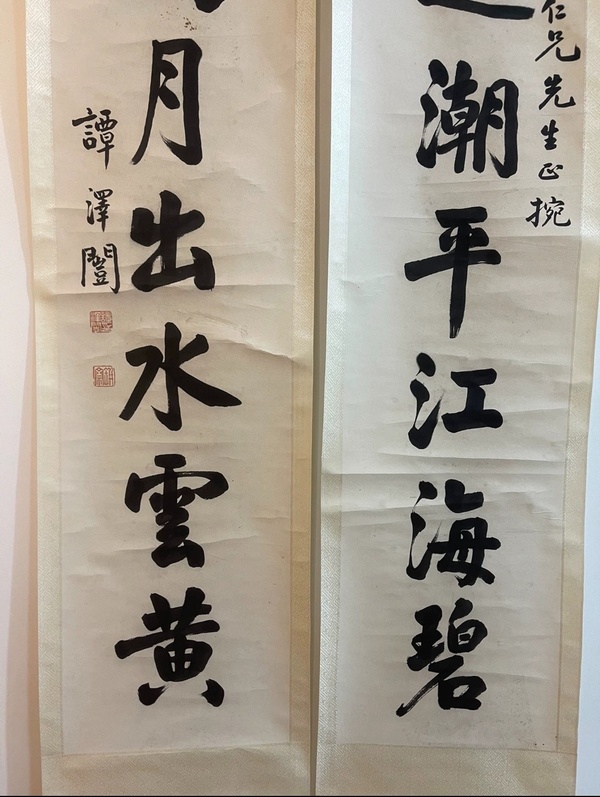 仁兄先生正捥
潮平江海碧
月出水雲黄
譚澤闓